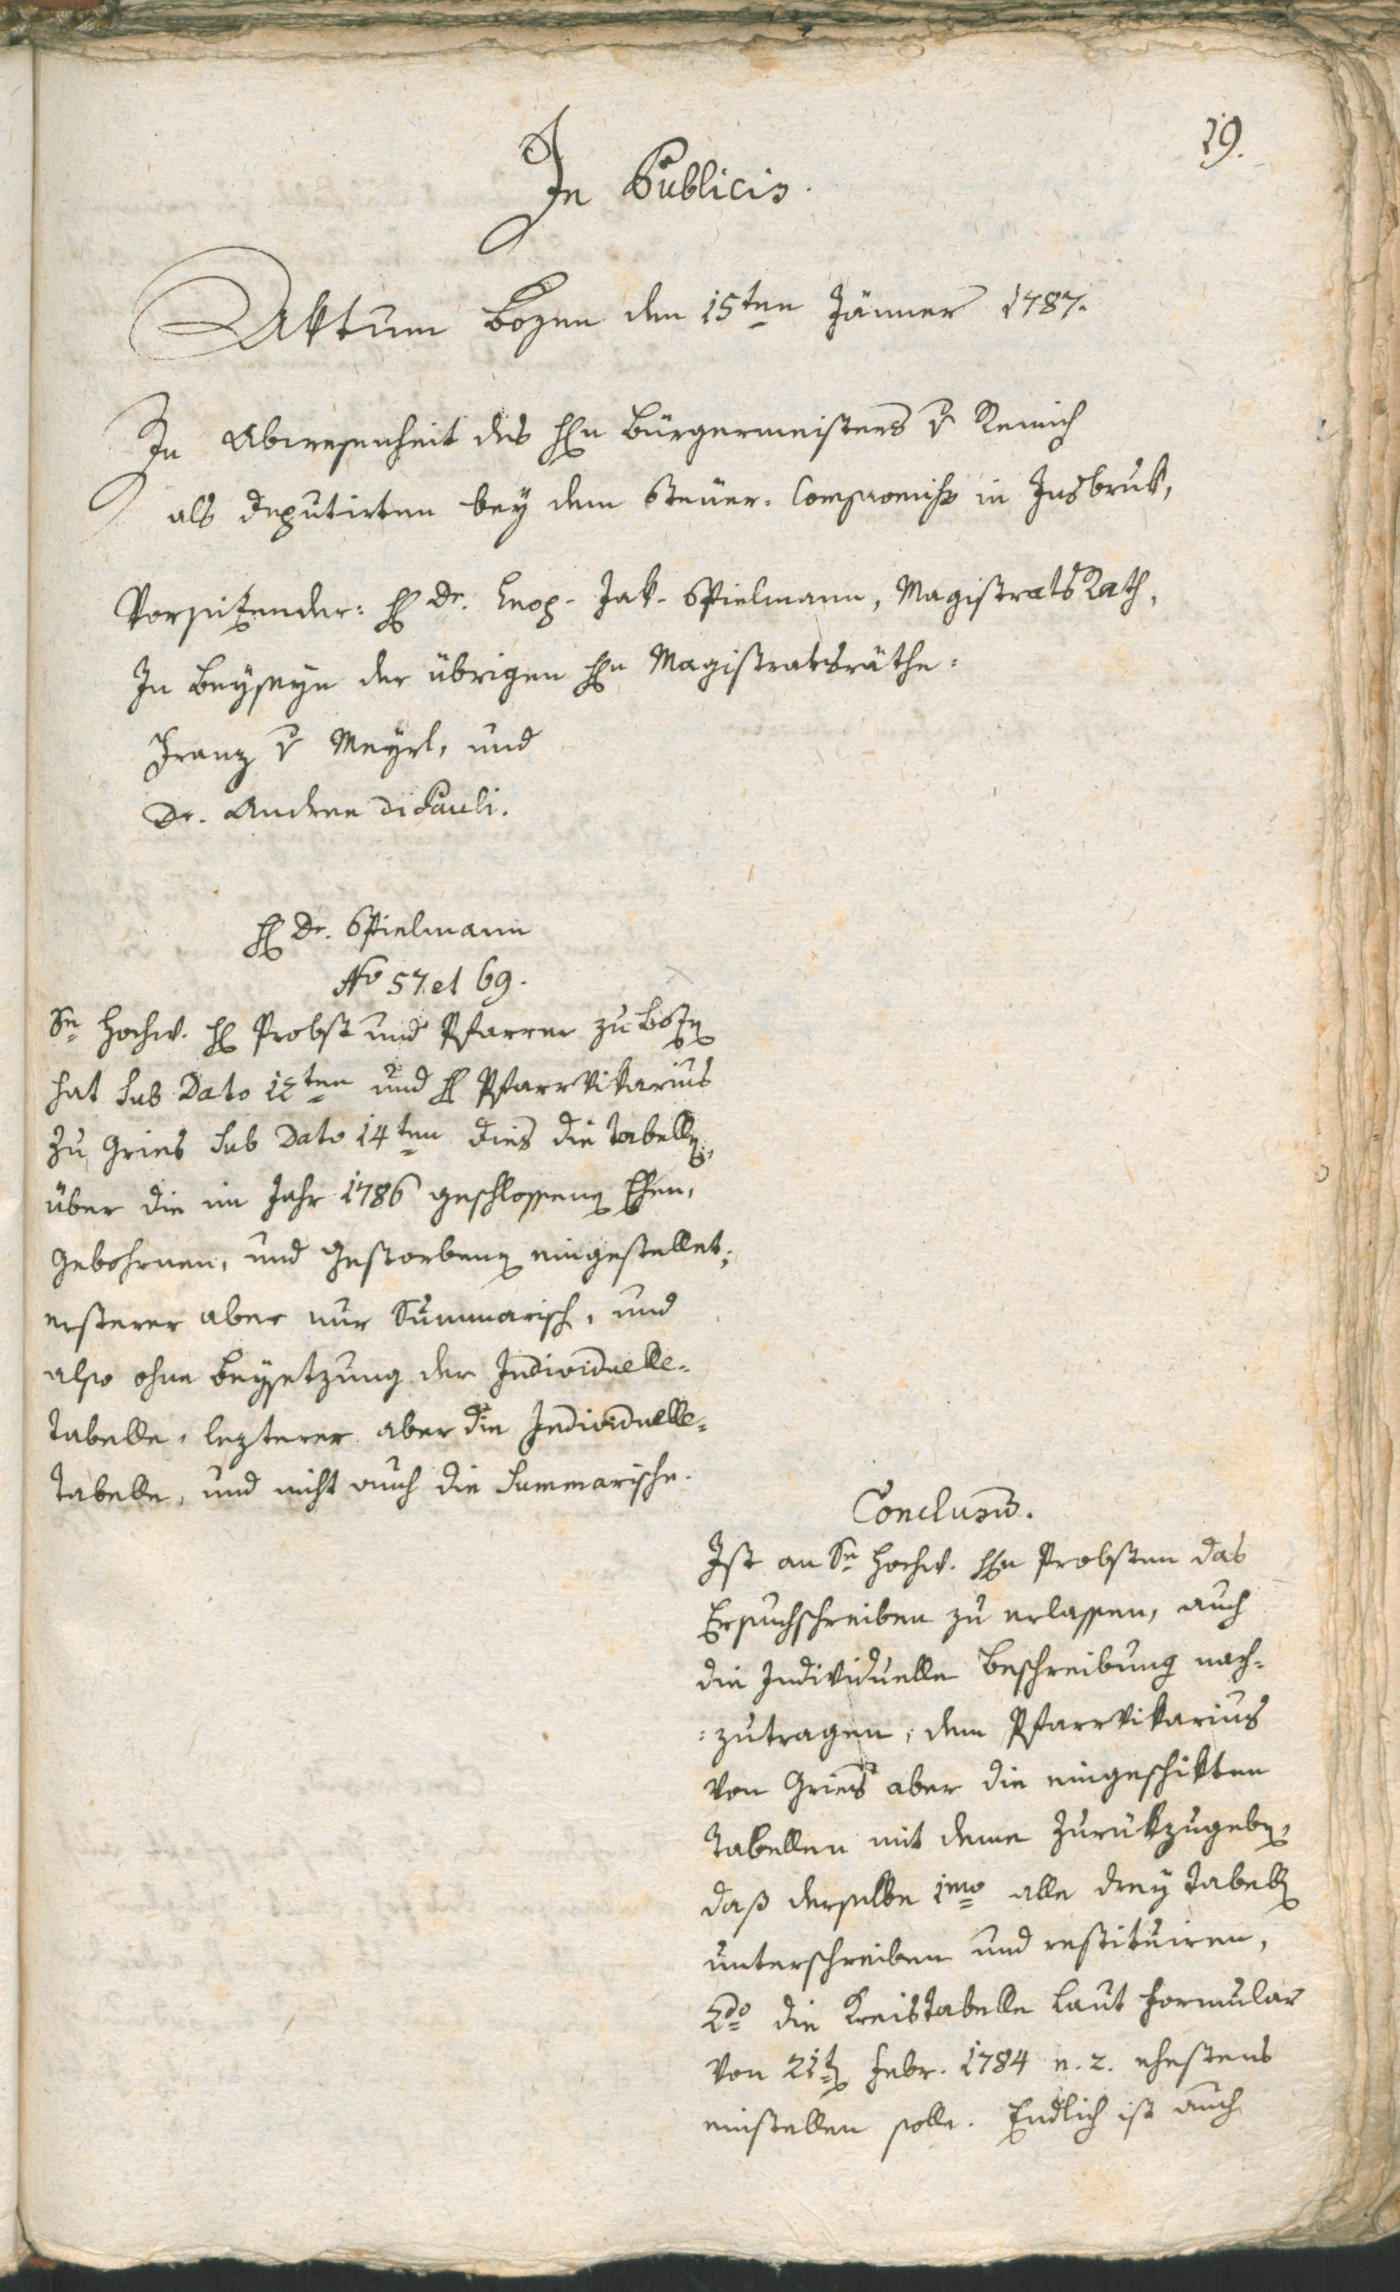 19.
In Publicis.
Aktum Bozen den 15ten Jänner 1787.
In Abwesenheit des Hn Bürgermeisters v Remich
als deputirten bey dem Steüer-Compromiss in Insbruk,
Vorsizender: H Dr. Leop. Jak. Spielmann, MagistratsRath,
In Beyseyn der übrigen Hn Magistratsräthe:
Franz v Meyrl, und
Dr. Andree Di Pauli.
H Dr. Spielmann
No 57. et 69.
Se Hochw. H Probst und Pfarrer zu Bozen
hat sub Dato 12ten und H Pfarrvikarius
zu Gries sub Dato 14ten dies die Tabellen
über die im Jahr 1786 geschlossenen Ehen,
Gebohrnen, und Gestorbenen eingestellet;
ersterer aber nur Summarisch, und
also ohne Beysetzung der Individuelle-
Tabelle, lezterer aber die Individuelle-
Tabelle, und nicht auch die Summarische.
Conclusum.
Ist an Se Hochw. Hn Probsten das
Ersuchschreiben zu erlassen, auch
die Individuelle Beschreibung nach-
-zutragen; dem Pfarrvikarius
von Gries aber die eingeschikten
Tabellen mit deme zurükzugeben,
daß derselbe 1mo alle drey Tabellen
unterschreiben und restituiren,
2do die Kreistabelle laut Formular
von 21ten Febr. 1784 n. 2. ehestens
einstellen solle. Endlich ist auch